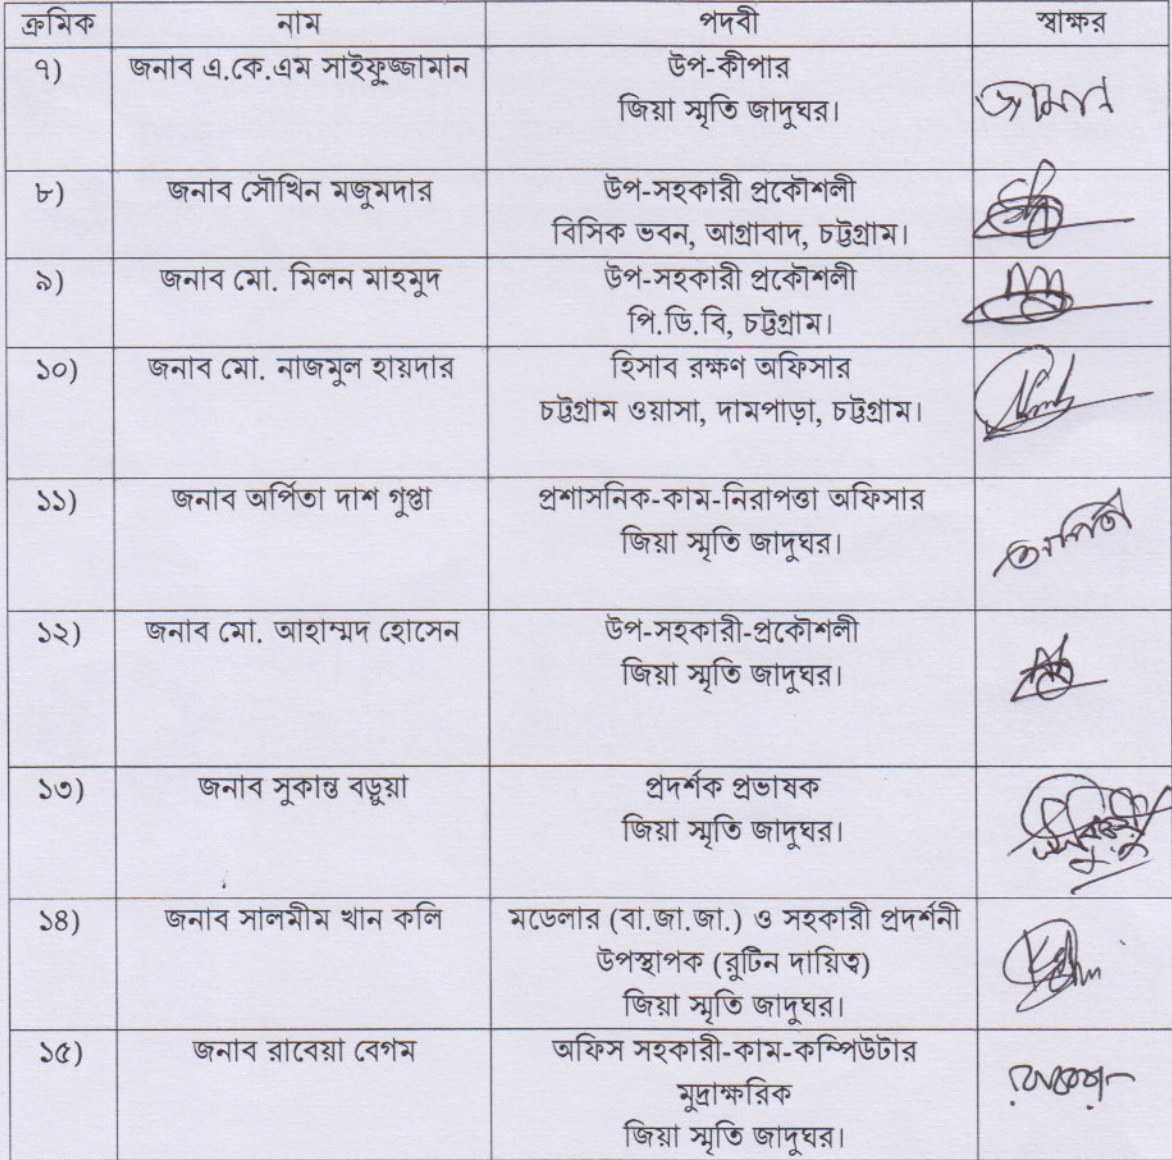 ক্রমিক নাম পদবী স্বাক্ষর
৭) জনাব এ.কে.এম সাইফুজ্জামান উপ-কীপার
জিয়া স্মৃতি জাদুঘর। জামান
৮) জনাব সৌখিন মজুমদার উপ-সহকারী প্রকৌশলী
বিসিক ভবন, আগ্রাবাদ, চট্টগ্রাম।
৯) জনাব মো. মিলন মাহমুদ উপ-সহকারী প্রকৌশলী
পি.ডি.বি, চট্টগ্রাম।
১০) জনাব মো. নাজমুল হায়দার হিসাব রক্ষণ অফিসার
চট্টগ্রাম ওয়াসা, দামপাড়া, চট্টগ্রাম।
১১) জনাব অর্পিতা দাশ গুপ্তা প্রশাসনিক-কাম-নিরাপত্তা অফিসার
জিয়া স্মৃতি জাদুঘর। অর্পিতা
১২) জনাব মো. আহাম্মদ হোসেন উপ-সহকারী-প্রকৌশলী
জিয়া স্মৃতি জাদুঘর।
১৩) জনাব সুকান্ত বড়ুয়া প্রদর্শক প্রভাষক
জিয়া স্মৃতি জাদুঘর।
১৪) জনাব সালমীম খান কলি মডেলার (বা.জা.জা.) ও সহকারী প্রদর্শনী
উপস্থাপক (রুটিন দায়িত্ব)
জিয়া স্মৃতি জাদুঘর।
১৫) জনাব রাবেয়া বেগম অফিস সহকারী-কাম-কম্পিউটার
মুদ্রাক্ষরিক রাবেয়া
জিয়া স্মৃতি জাদুঘর।